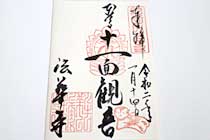 奉拝
令和二年
一月十四日
十一面観音
法華寺